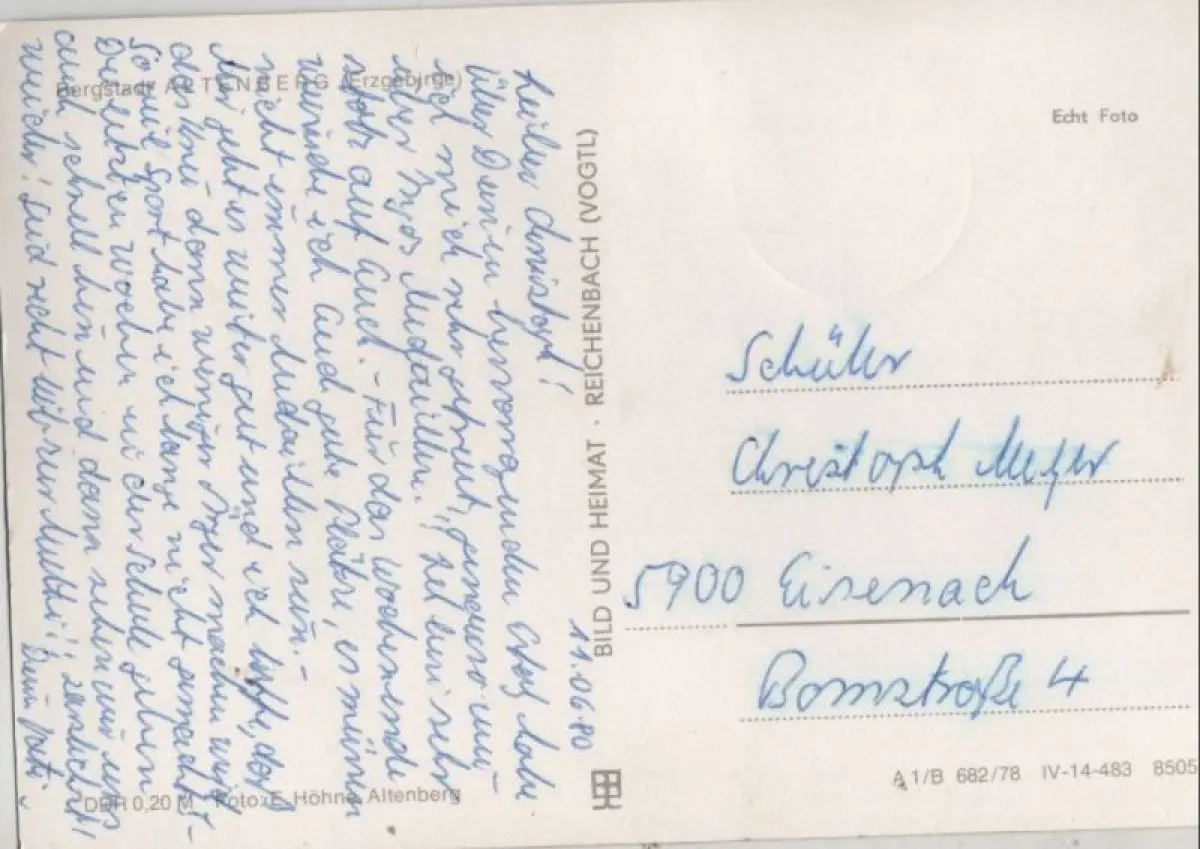 Bergstadt ALTENBERG (Erzgebirge)
11.06.80
Lieber Christoph!
Über Deinen hervorragenden Erfolg habe
ich mich sehr gefreut, genauso wie
über Ingos Medaillen. Ich bin sehr
stolz auf Euch. - Für das Wochenende
wünsche ich Euch gute Plätze, es müssen
nicht immer Medaillen sein. -
Mir geht es weiter gut und ich hoffe, daß
das Knie dann weniger Ärger machen wird
So viel Sport habe ich lange nicht gemacht! -
Die letzten Wochen in der Schule gehen
auch schnell hin und dann sehen wir uns
wieder! Seid recht lieb zur Mutti!
Dein Vati
DDR 0,20 M Foto: E. Höhne, Altenberg
BILD UND HEIMAT · REICHENBACH (VOGTL)
Echt Foto
Schüler
Christoph Meyer
5900 Eisenach
Bornstraße 4
A 1/B 682/78 IV-14-483 8505